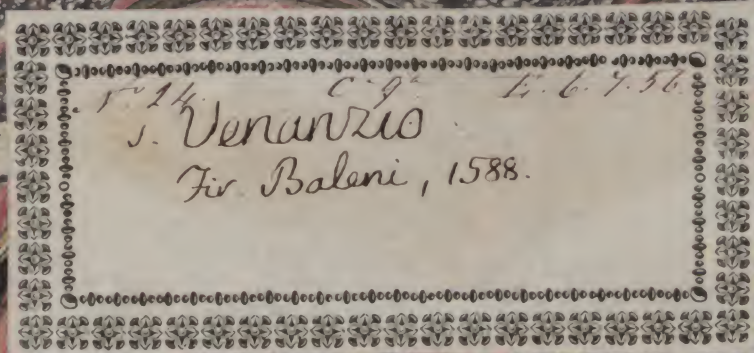 C. 9. E. 6. 7. 56.
S. Venanzio
Fir. Baleni, 1588.